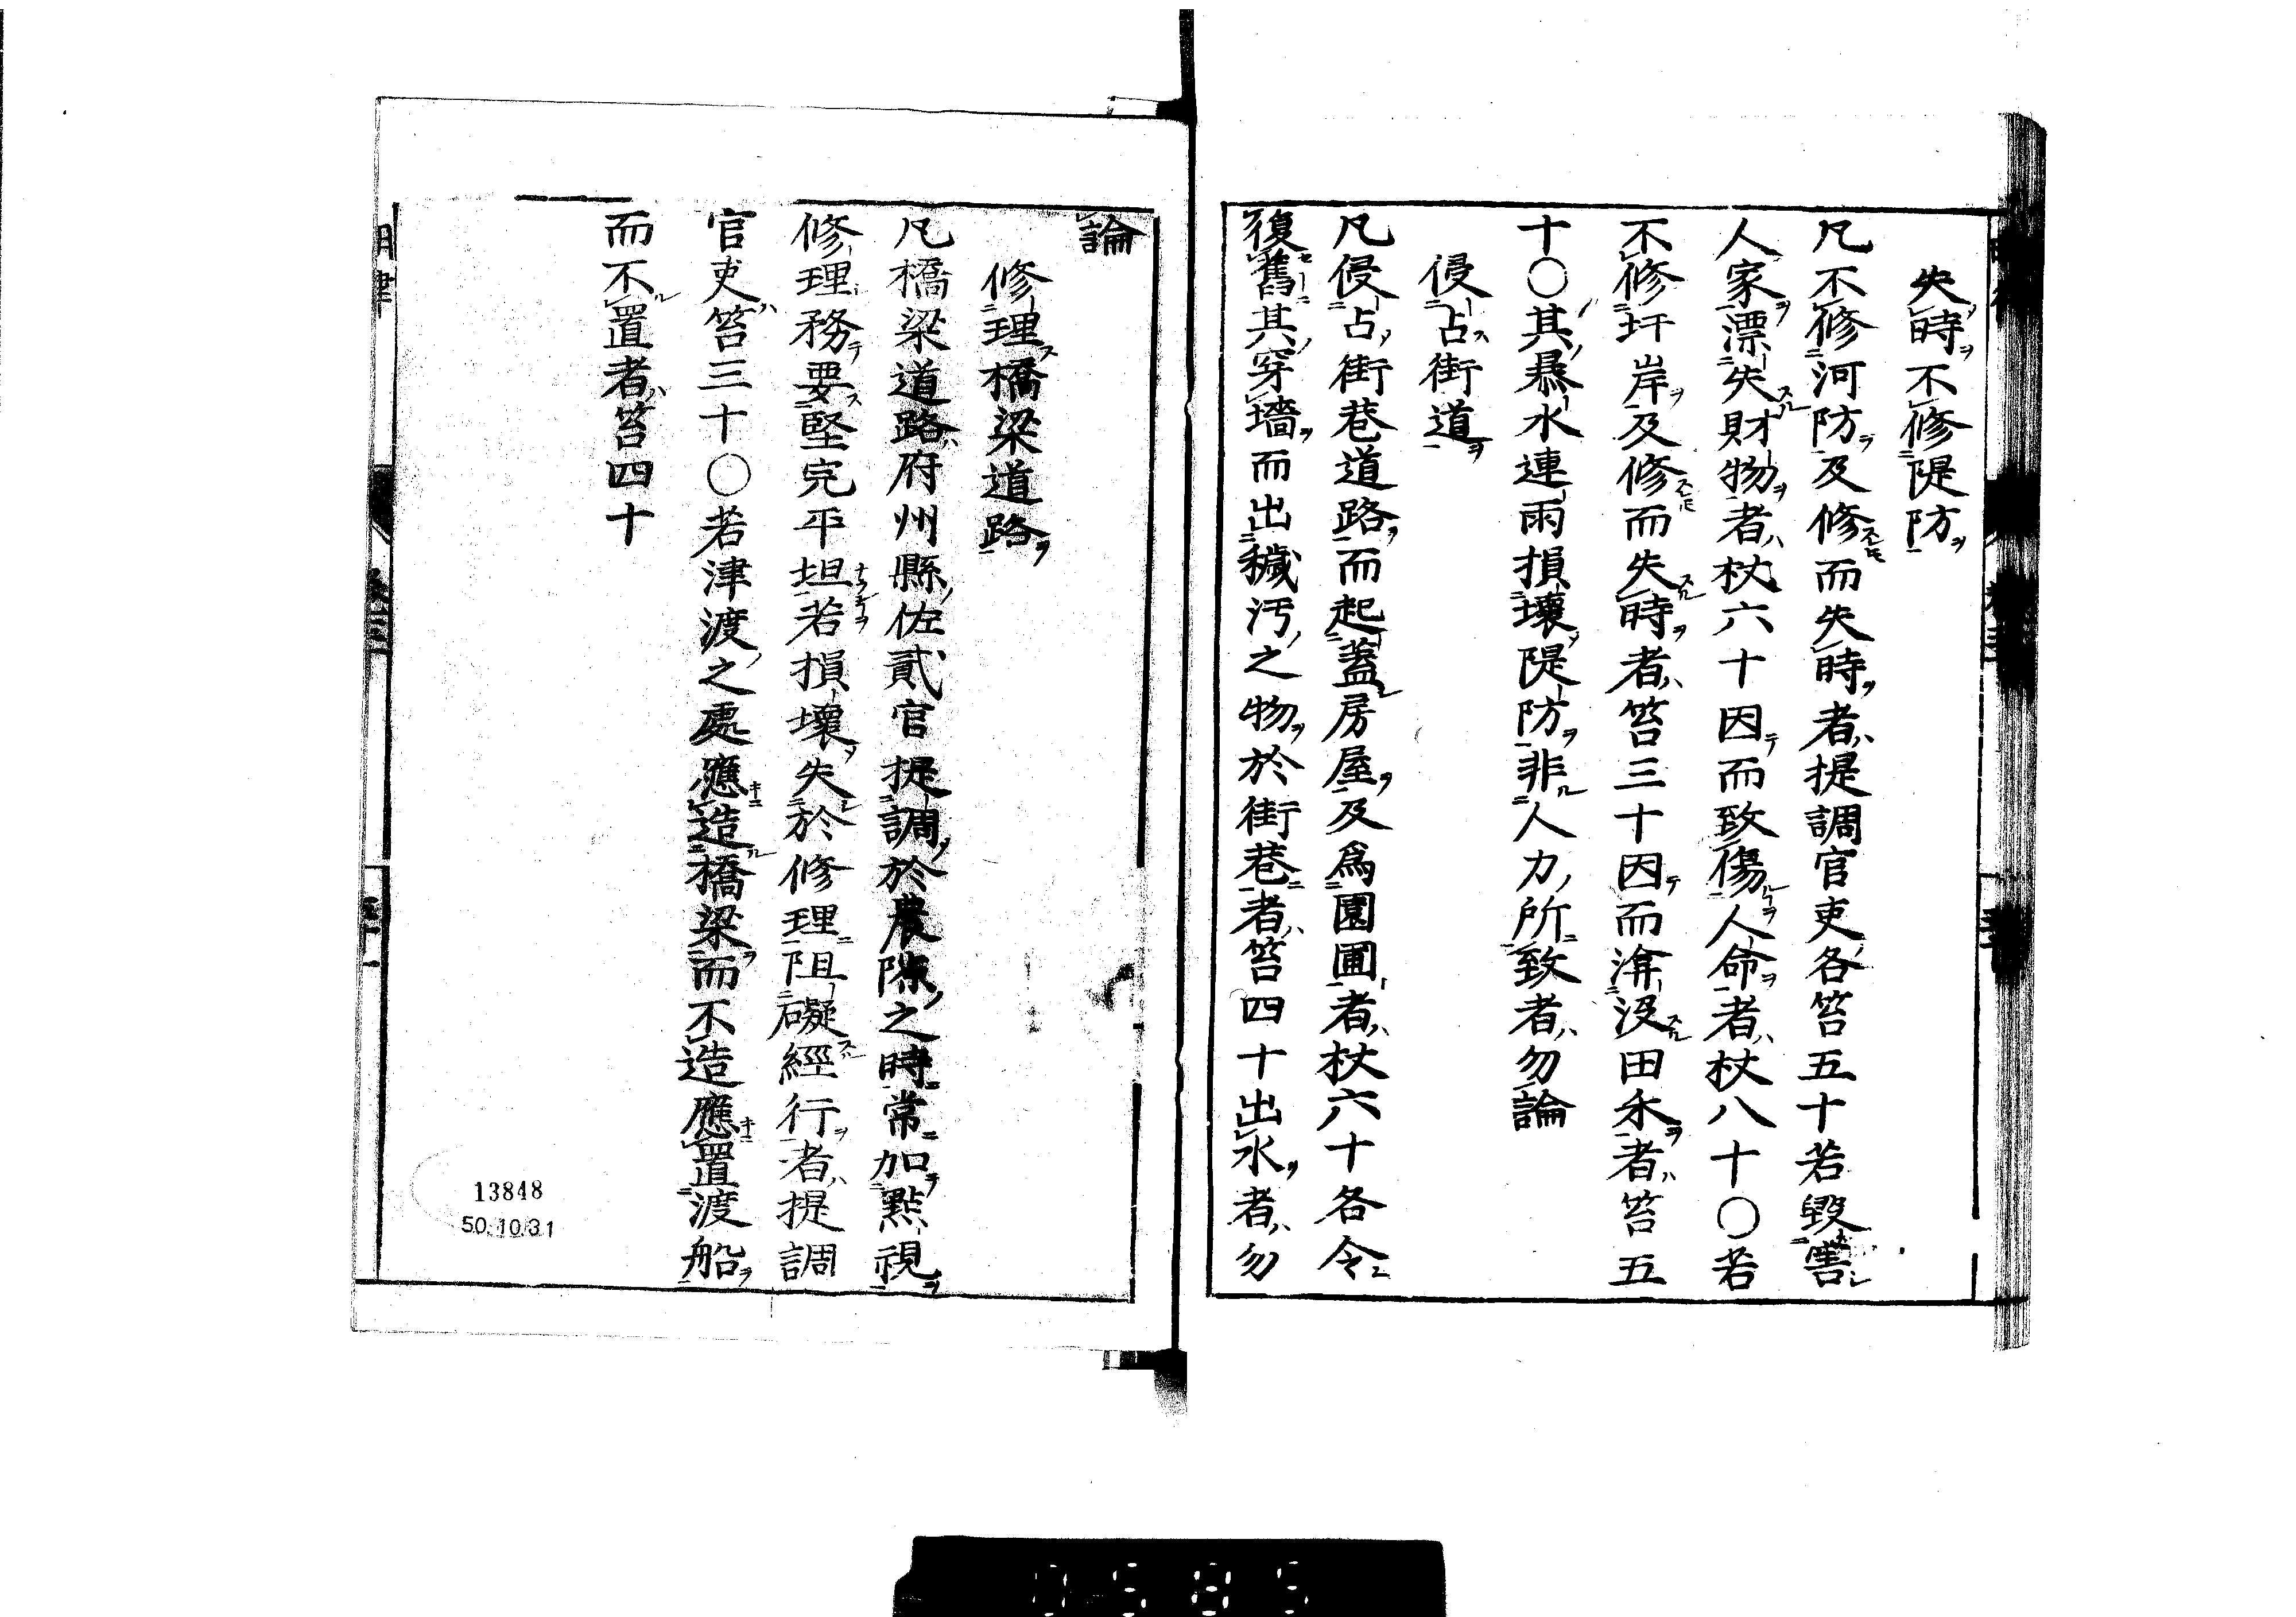 失時不修隄防
凡不修河防及修而失時者提調官吏各笞五十若毀害
人家漂失財物者杖六十因而致傷人命者杖八十〇若
不修圩岸及修而失時者笞三十因而渰没田禾者笞五
十〇其暴水連雨損壞隄防非人力所致者勿論
侵占街道
凡侵占街巷道路而起蓋房屋及爲園圃者杖六十各令
復舊其穿墻而出穢汚之物於街巷者笞四十出水者勿
論
修理橋梁道路
凡橋梁道路府州縣佐貳官提調於農隙之時常加點視
修理務要堅完平坦若損壞失於修理阻礙經行者提調
官吏笞三十〇若津渡之處應造橋梁而不造應置渡船
而不置者笞四十
13848
50.10.31